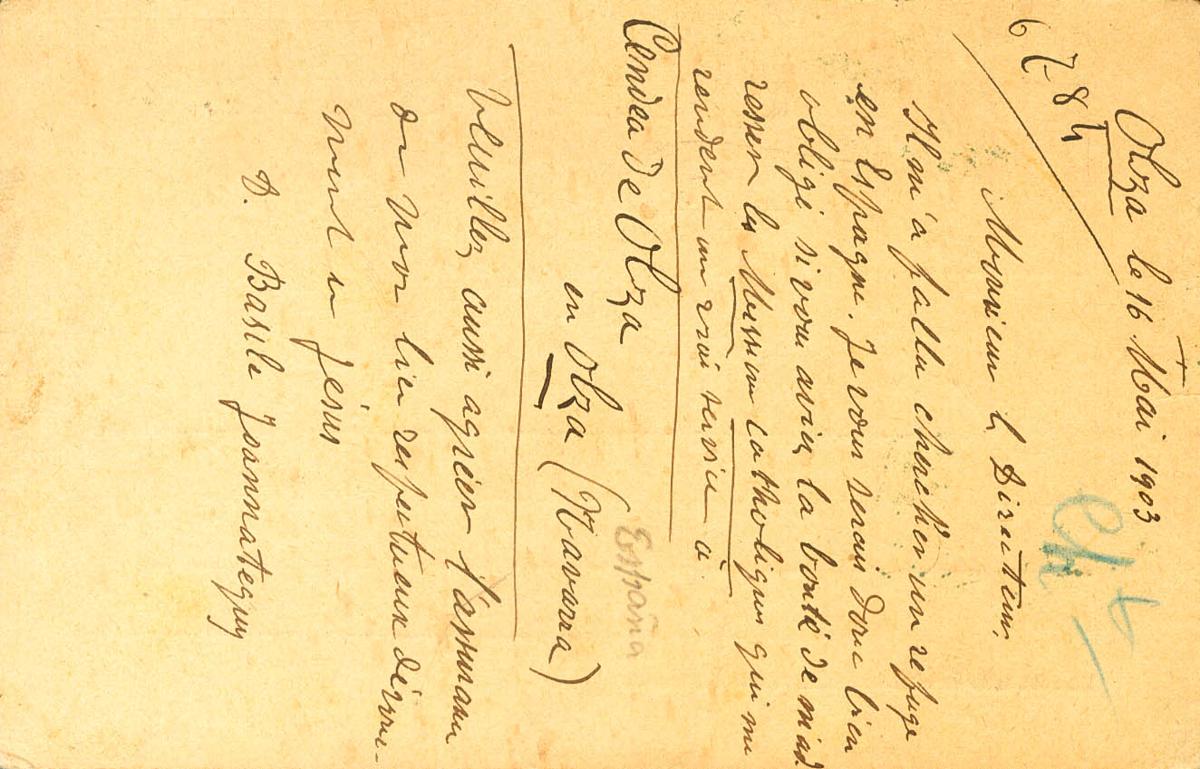 +
Olza le 16 Mai 1903
6784
Monsieur le Directeur,
Il m'a fallu chercher un refuge
en Espagne. Je vous serais donc bien
obligé si vous aviez la bonté de m'ad
resser les Missions catholiques qui me
rendent un vrai service à
Cendea de Olza
en Olza (Navarra)
España
Veuillez aussi agréer l'assuran
de mon bien respectueux dévoue-
ment en Jésus
D. Basile Joannateguy